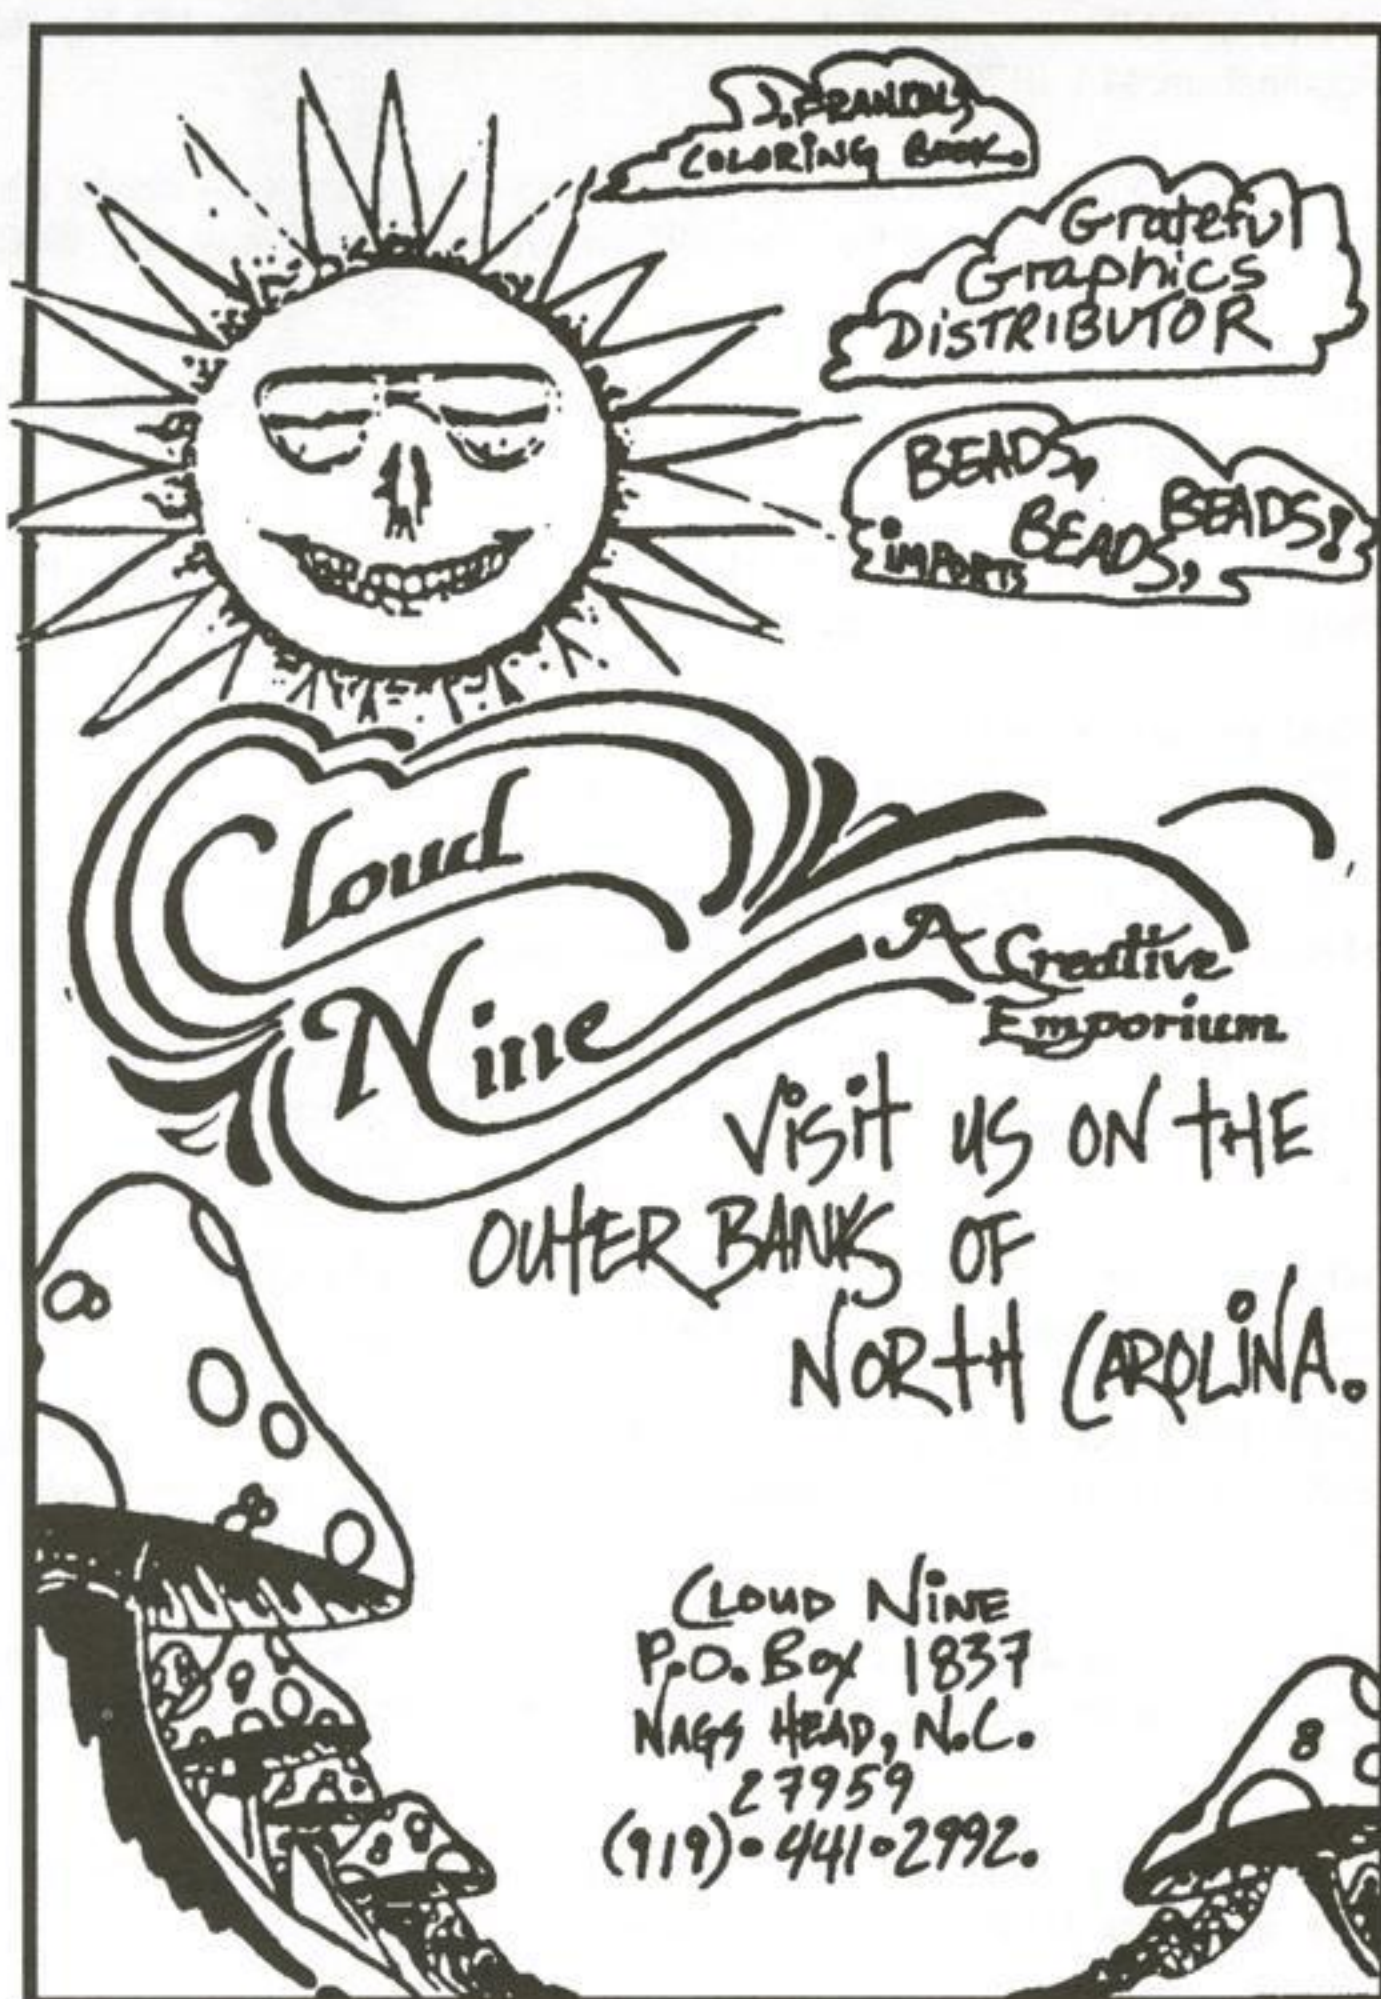 COLORING BOOK.
Grateful
Graphics
DISTRIBUTOR
BEADS,
BEADS,
BEADS!
IMPORTS
Cloud
Nine
A Creative
Emporium
Visit us ON tHE
OUtER BANKS OF
NORtH CAROLiNA.
CLOUD NiNE
P.O. Box 1837
NAGS HEAD, N.C.
27959
(919)•441•2992.